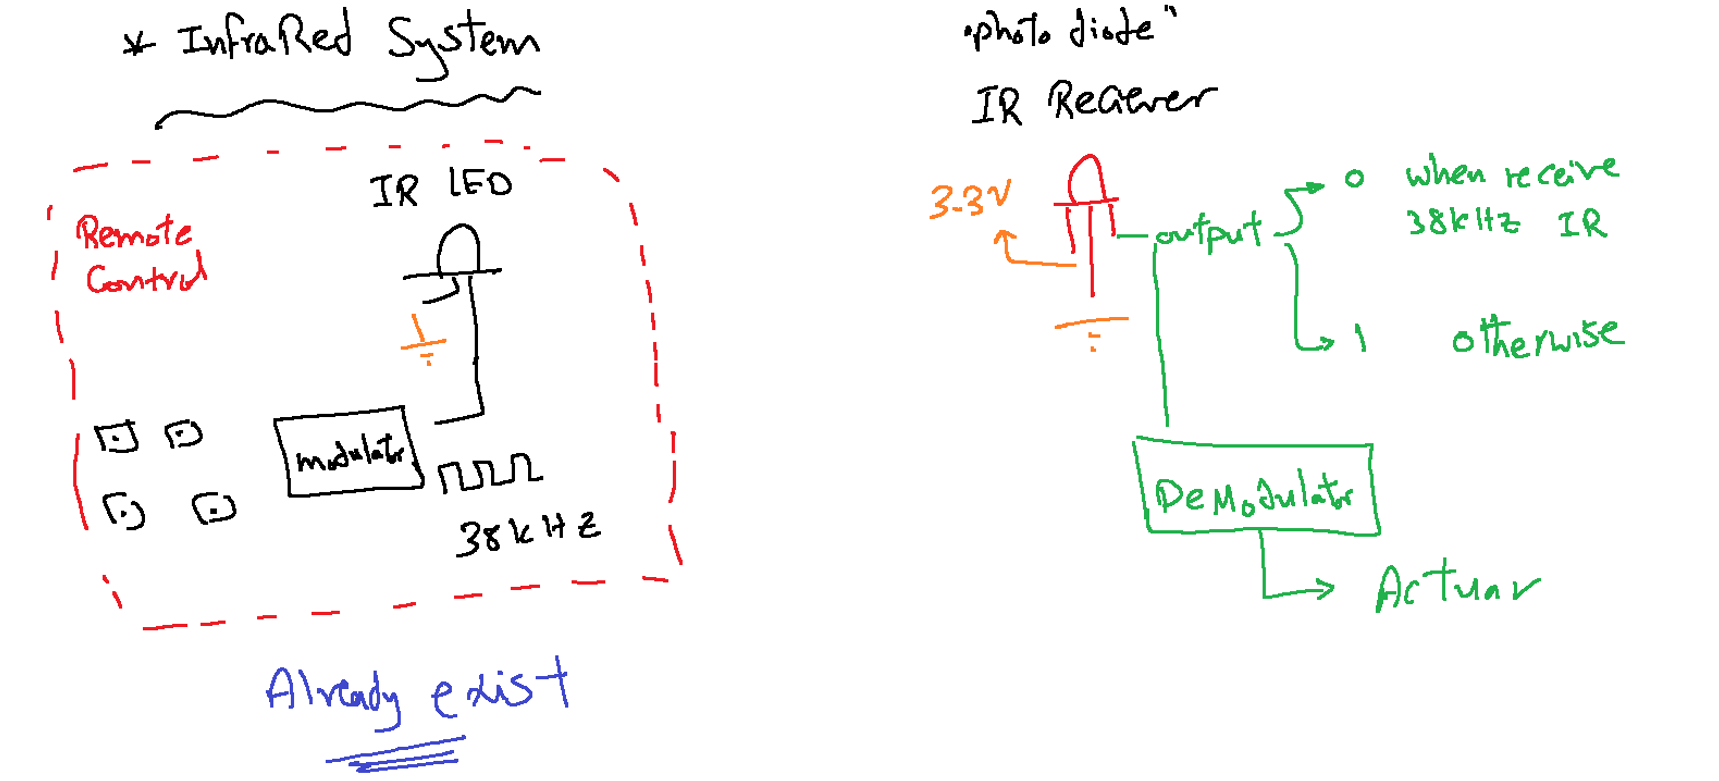 * InfraRed System
IR LED
Remote
Control
modulator
38kHz
Already exist
"photo diode"
IR Reciever
3.3V
output
0 when receive
38kHz IR
1 otherwise
DeModulator
Actuar